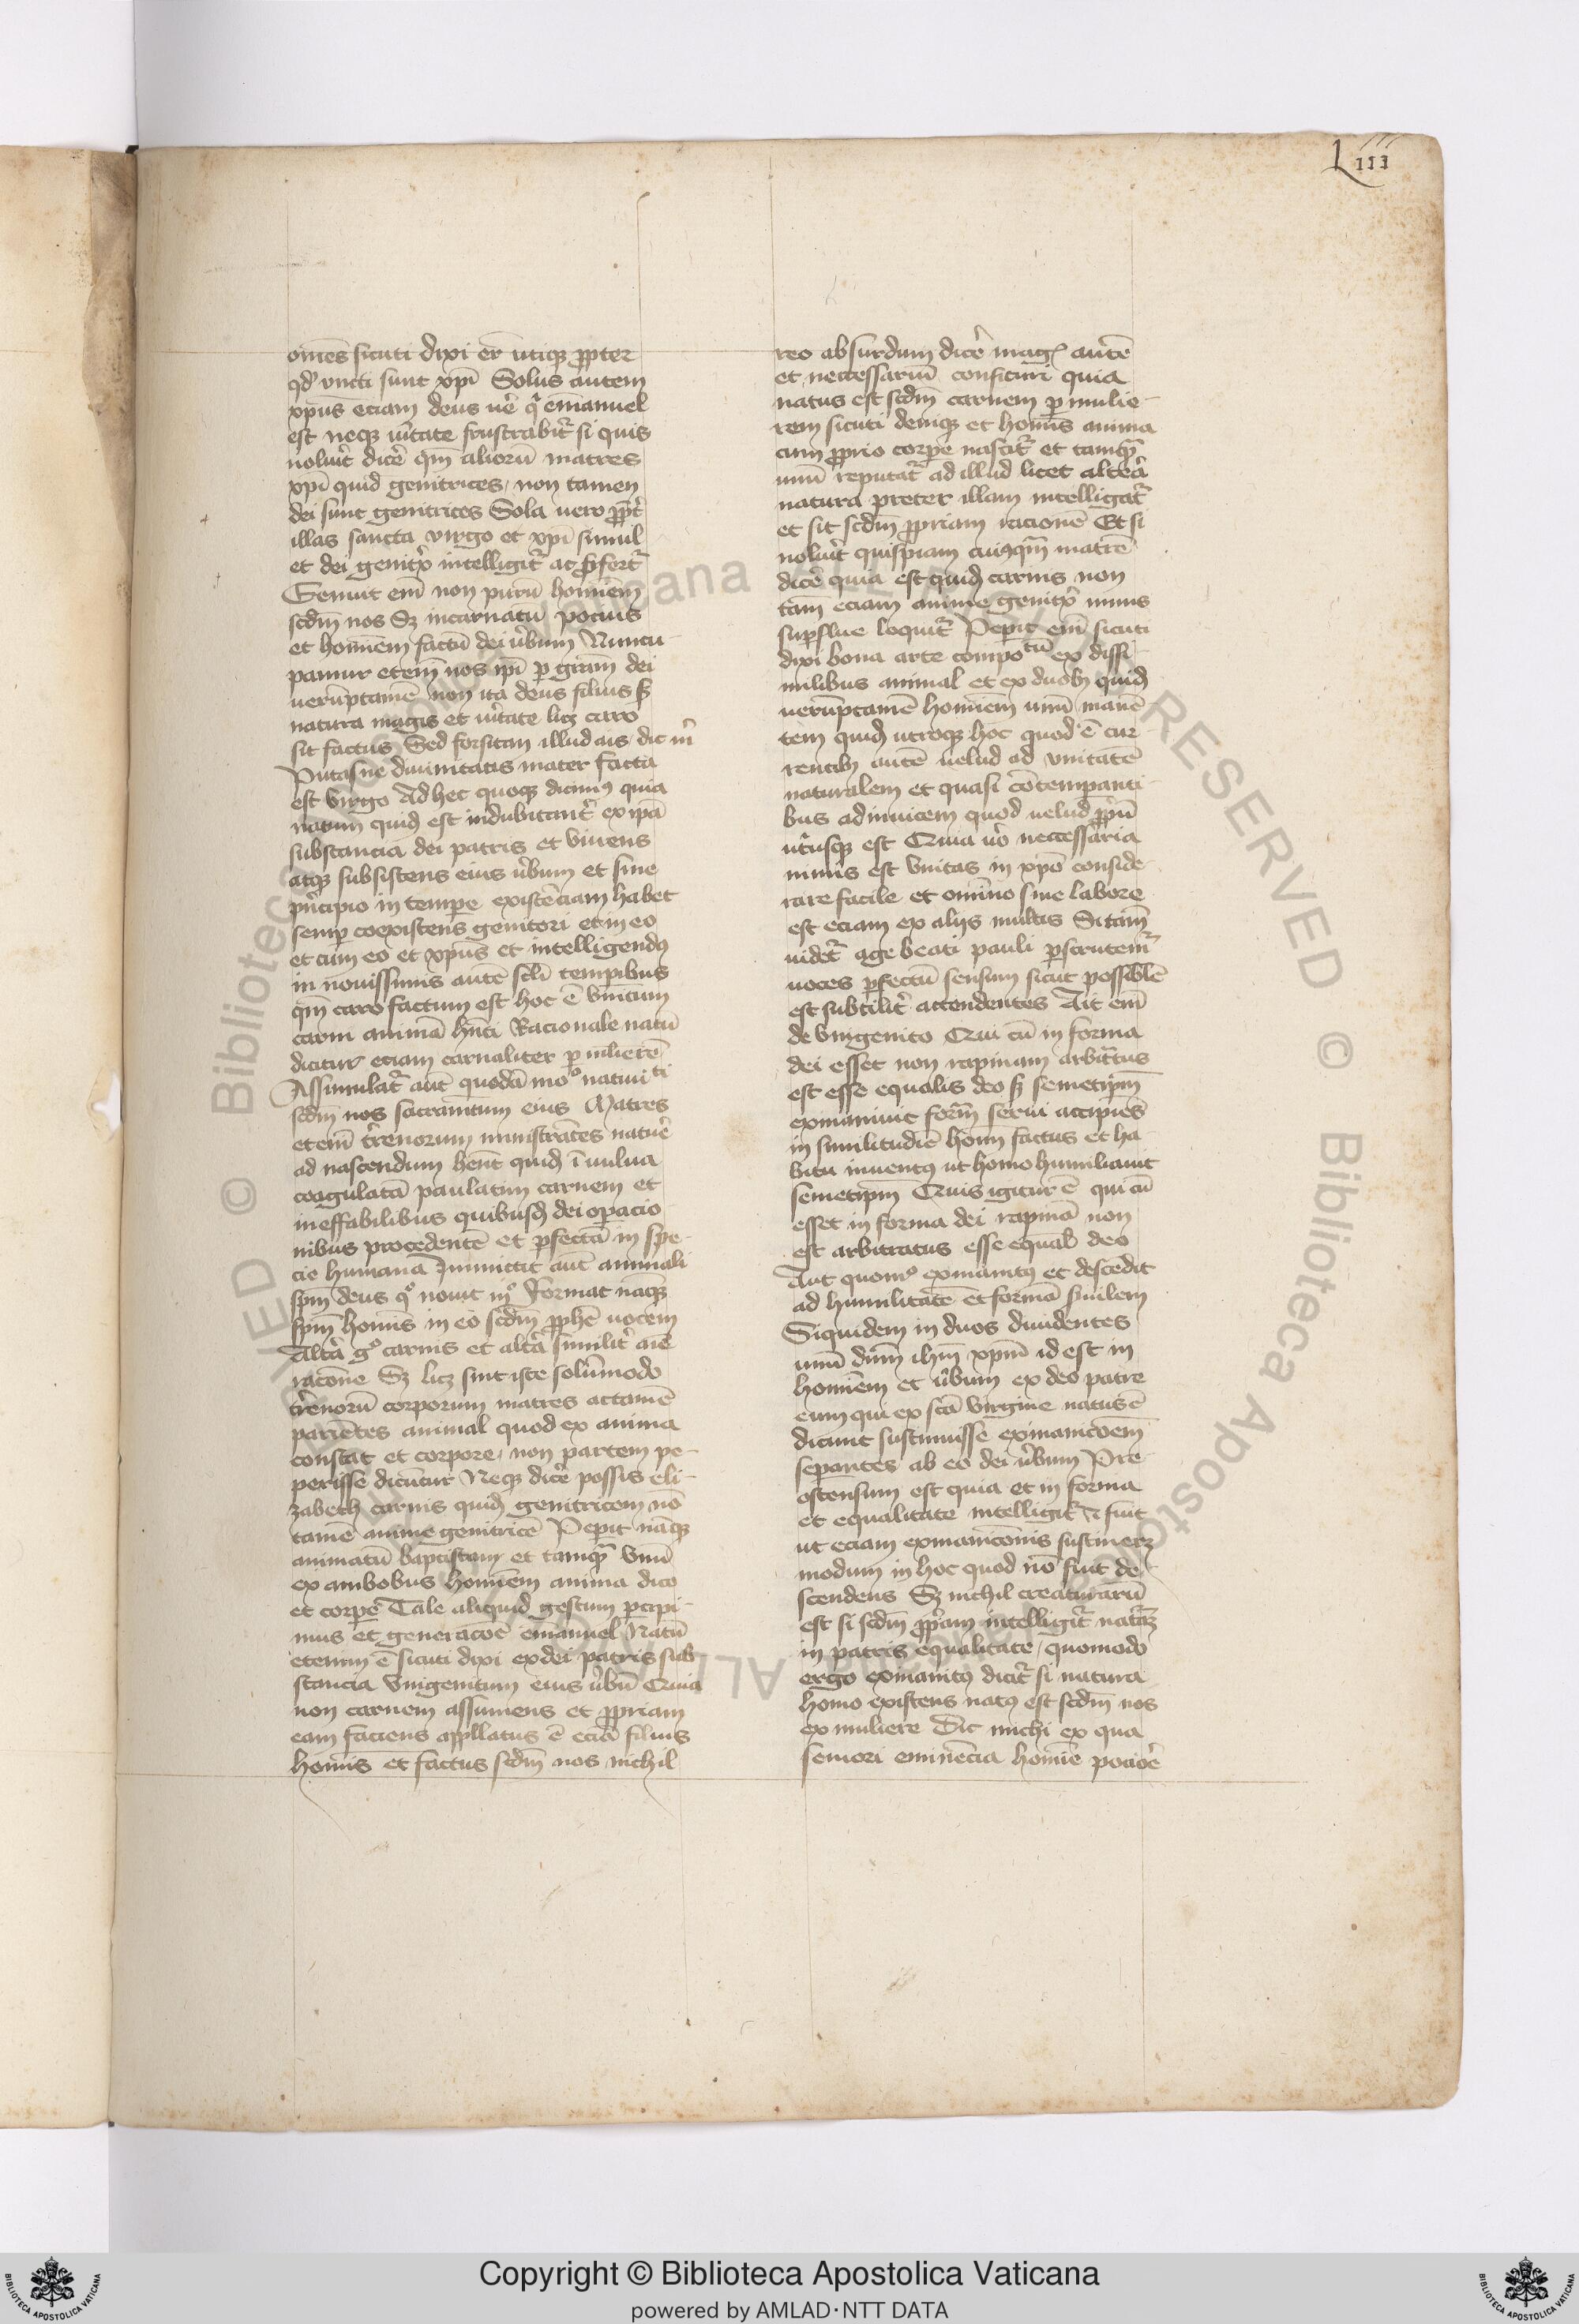 Liii
om̄es sicuti dixi er̄ utiqꝫ ꝓpter
qđ uncti sunt xp̄i Solus autem
xpūs eciam deus ue᷒ q̇ emanuel
est neqꝫ ūitate frustrabit᷑ si quis
uolu᷒it dice᷒ qm̄ aliorū matres
xp̄i quid genitrices, non tamen
dei sunt genitrices Sola uero ꝓpt᷒
illas sancta virgo et xp̄i simul
et dei genit̾x intelligit᷑ ac ꝓfert᷑
Genuit em̄ non purū hominem
scdm̄ nos Sꝫ incarnatū pocius
et hominem factū dei u᷒bum Nuncu-
pamur etem̄ nos ip̄i ꝑ gr̄am dei
uerūptamē non ita deus filius sꝫ
natura magis et u᷒itate licꝫ caro
sit factus Sed forsitan illud ais dic m̾
Putasne diuinitatis mater facta
est virgo Ad hec quoqꝫ dicimꝰ quia
natum quidē est indubitant᷒ ex ipā
substancia dei patris et viuens
atqꝫ subsistens eius u᷒bum et sine
pn̄cipio in tempe existēciam habet
semꝑ coexistens genitori et in eo
et cum eo et xpūs et intelligendꝰ
in nouissimis autē scl̄i tempibus
qm̄ caro factum est hoc ē vnitum
carni animā hn̄ti Racionale natū
dicitur eciam carnaliter ꝑ mlierē
Assimulat᷑ aūt quodā moͦ natiui ti
scdm̄ nos sacramētum eius Matres
etem̄ t᷒renorum ministrātes natue᷒
ad nascendum hēnt quidē ī uulua
coagulatā paulatim carnem et
ineffabilibus quibusdā dei opacio-
nibus procedentē et ꝑfectā in spe-
cie humana Inmittit aūt animali
spm̄ deus qͦ nouit mͦ Format nāqꝫ
spm̄ hominis in eo scdm̄ ꝓphē uocem
Alt᷒a gͦ carnis et alt᷒a similit᷒ aīe
racōne Sꝫ licꝫ sint iste solūmodo
t᷒renorū corporum matres attamē
parientes animal quod ex anima
constat et corpore, non partem pe-
perisse dicūtur Neqꝫ dice᷒ possis eli-
zabeth carnis quidē genitricem nō
tamē anime genitricē Pepit nāqꝫ
animatū baptistam et tamqͣ vnū
ex ambobus hominem anima dico
et corpe᷒ Tale aliquid gestum ꝑcipi-
mus et generacōe emanuel Natū
etenim ē sicuti dixi ex dei patris sub
stancia vnigenitum eius u᷒bū Quia
non carnem assumens et ꝓpriam
eam faciens appellatus ē eciā filius
hominis et factus scdm̄ nos, nichil
reo absurdum dice᷒ magꝭ autē
et neccessariū confiteri quia
natus est scdm̄ carnem ꝑ mulie-
rem sicuti deniqꝫ et hominis anima
cum ꝓprio corpe nascit᷑ et tamqͣ
unū reputat᷑ ad illud licet alte᷒a
natura preter illam intelligat᷑
et sit scdm̄ ꝓpriam racionē Et si
uolu᷒it quispiam cuiꝰqm̄ matrē
dice᷒ quia est quidē carnis non
tam̄ eciam anime genit̾x nimis
supflue loquit᷑ Pepit em̄ sicuti
dixi bona arte compotū ex dissi-
milibus animal et ex duobꝫ quidē
uerūptamē hominem unū manē
tem quidē utroqꝫ hoc quod ē cur
rentibꝫ autē uelud ad vnitatē
naturalem et quasi cōtempanti-
bus adinuicem quod uelud ꝓpiū
ut᷒iusqꝫ est Quia u᷒o neccessaria
nimis est vnitas in xpō conside-
rare facile et om̄ino sine labore
est eciam ex alijs multis Si tam̄
uidet᷑ age beati pauli ꝑscrutem᷑
uoces ꝑfectū sensum sicut possiblē
est subtilit᷒ attendentes Ait em̄
de vnigenito Qui cū in forma
dei esset non rapinam arbit᷑tus
est esse equalis deo sꝫ semetipm̄
exinaniuit form̄ serui accipiēs
in similitudīe homin factus et ha-
bitu inuentꝰ ut homo humiliauit
semetipm̄ Quis igitur ē qui cū
esset in forma dei rapinā non
est arbitratus esse equalē deo
Aut quomͦ exinanitꝰ et descēdit
ad humilitatē et formā s᷒uilem
Siquidem in duos diuidentes
unū dnm̄ ihm̄ xpm̄ id est in
hominem et u᷒bum ex deo patre
eum qui ex scā virgine natus ē
dicunt sustinuisse exinanicōem
sepantes ab eo dei u᷒bum Pre-
ostensum est quia et in forma
et equalitate intelligit᷑ ⁊ fuit
ut eciam exinanicōnis sustinerꝫ
modum in hoc quod nō fuit de-
scendens Sꝫ nichil creaturarū
est si scdm̄ ꝓp̾am intelligit᷑ natam̄
in patris equalitate, quomodo
ergo exinanitꝰ dicit᷑ si natura
homo existens natꝰ est scdm̄ nos
ex muliere Dic michi ex qua
seniori eminēcia homīe pocioe᷒